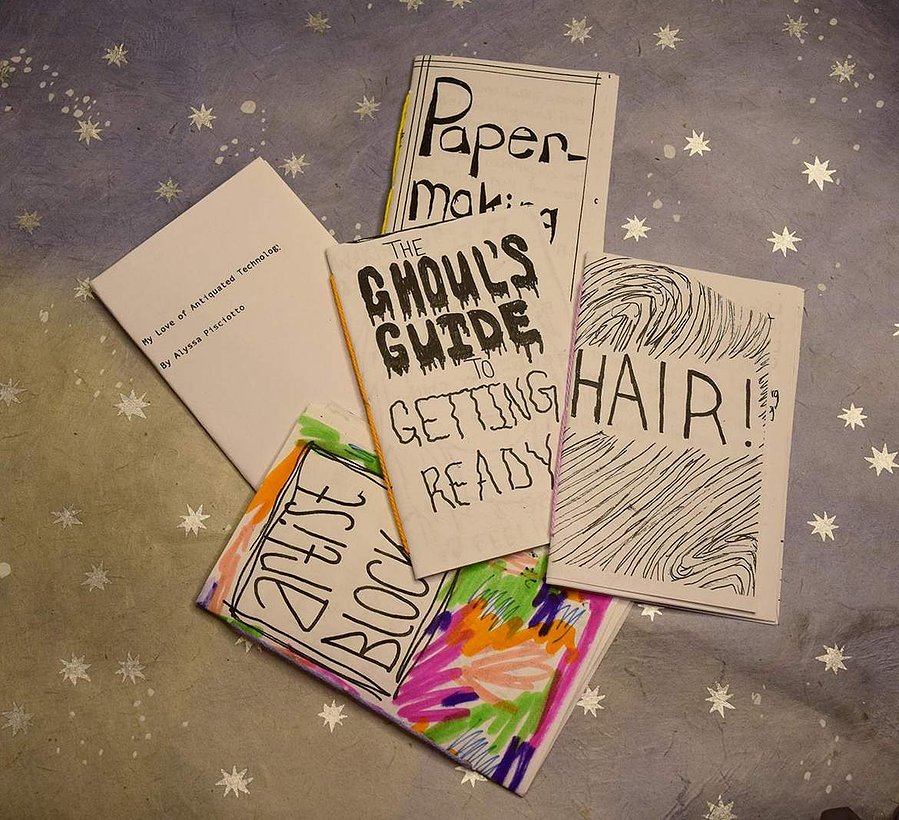 Paper-
making
My Love of Antiquated Technology
By Alyssa Pisciotto
THE
GHOUL'S
GUIDE
TO
GETTING
READY
HAIR!
artist
BLOCK